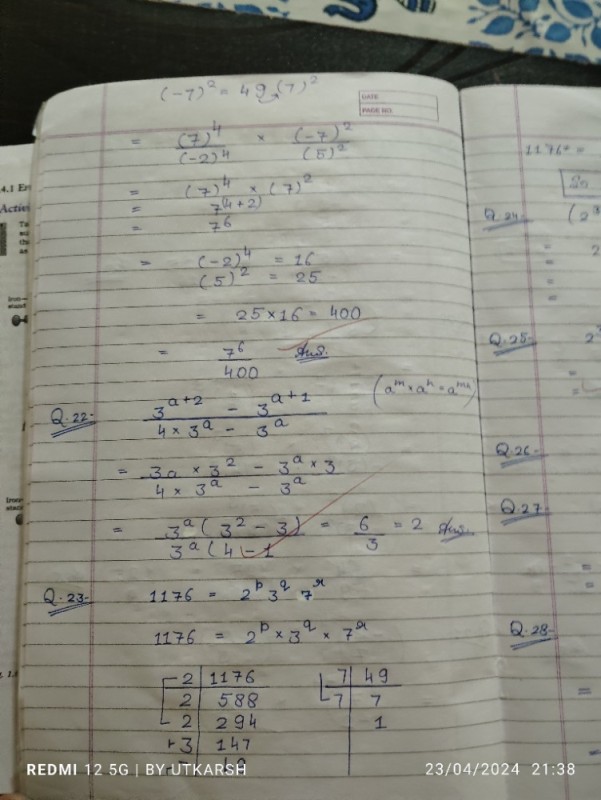 (-7)² = 49 (7)²
DATE
PAGE NO.
= (7)⁴/(-2)⁴ × (-7)²/(5)²
= (7)⁴ × (7)²
= 7(4+2)
= 7⁶
= (-2)⁴ = 16
(5)² = 25
= 25×16 = 400
= 7⁶/400 Ans.
(aᵐ×aⁿ=aᵐⁿ)
Q.22- 3ᵃ⁺² - 3ᵃ⁺¹
4×3ᵃ - 3ᵃ
= 3a × 3² - 3ᵃ×3
4×3ᵃ - 3ᵃ
= 3ᵃ(3²-3)/3ᵃ(4-1 = 6/3 = 2 Ans.
Q.23- 1176 = 2ᵖ 3^q 7^r
1176 = 2ᵖ × 3^q × 7^r
2 1176
2 588
2 294
3 147
7 49
7 7
1
1176 =
So
Q.24-
Q.25-
Q.26-
Q.27
Q.28-
4.1
REDMI 12 5G | BY UTKARSH
23/04/2024 21:38